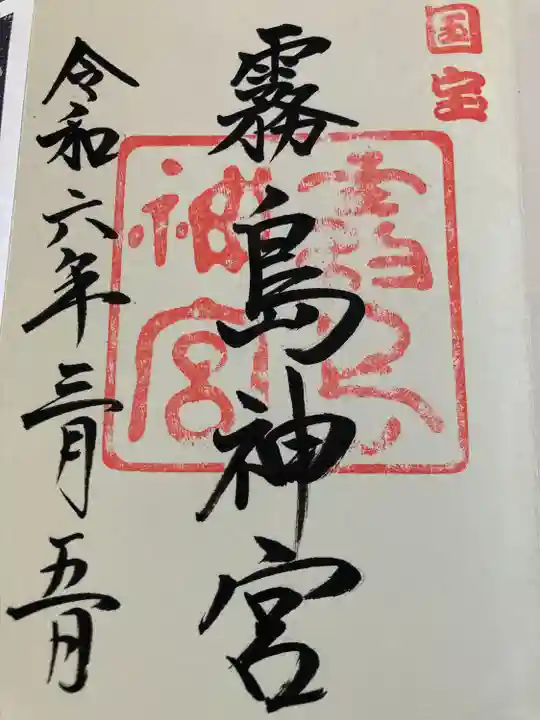 国宝
霧島神宮
霧島
神宮
令和六年三月五月